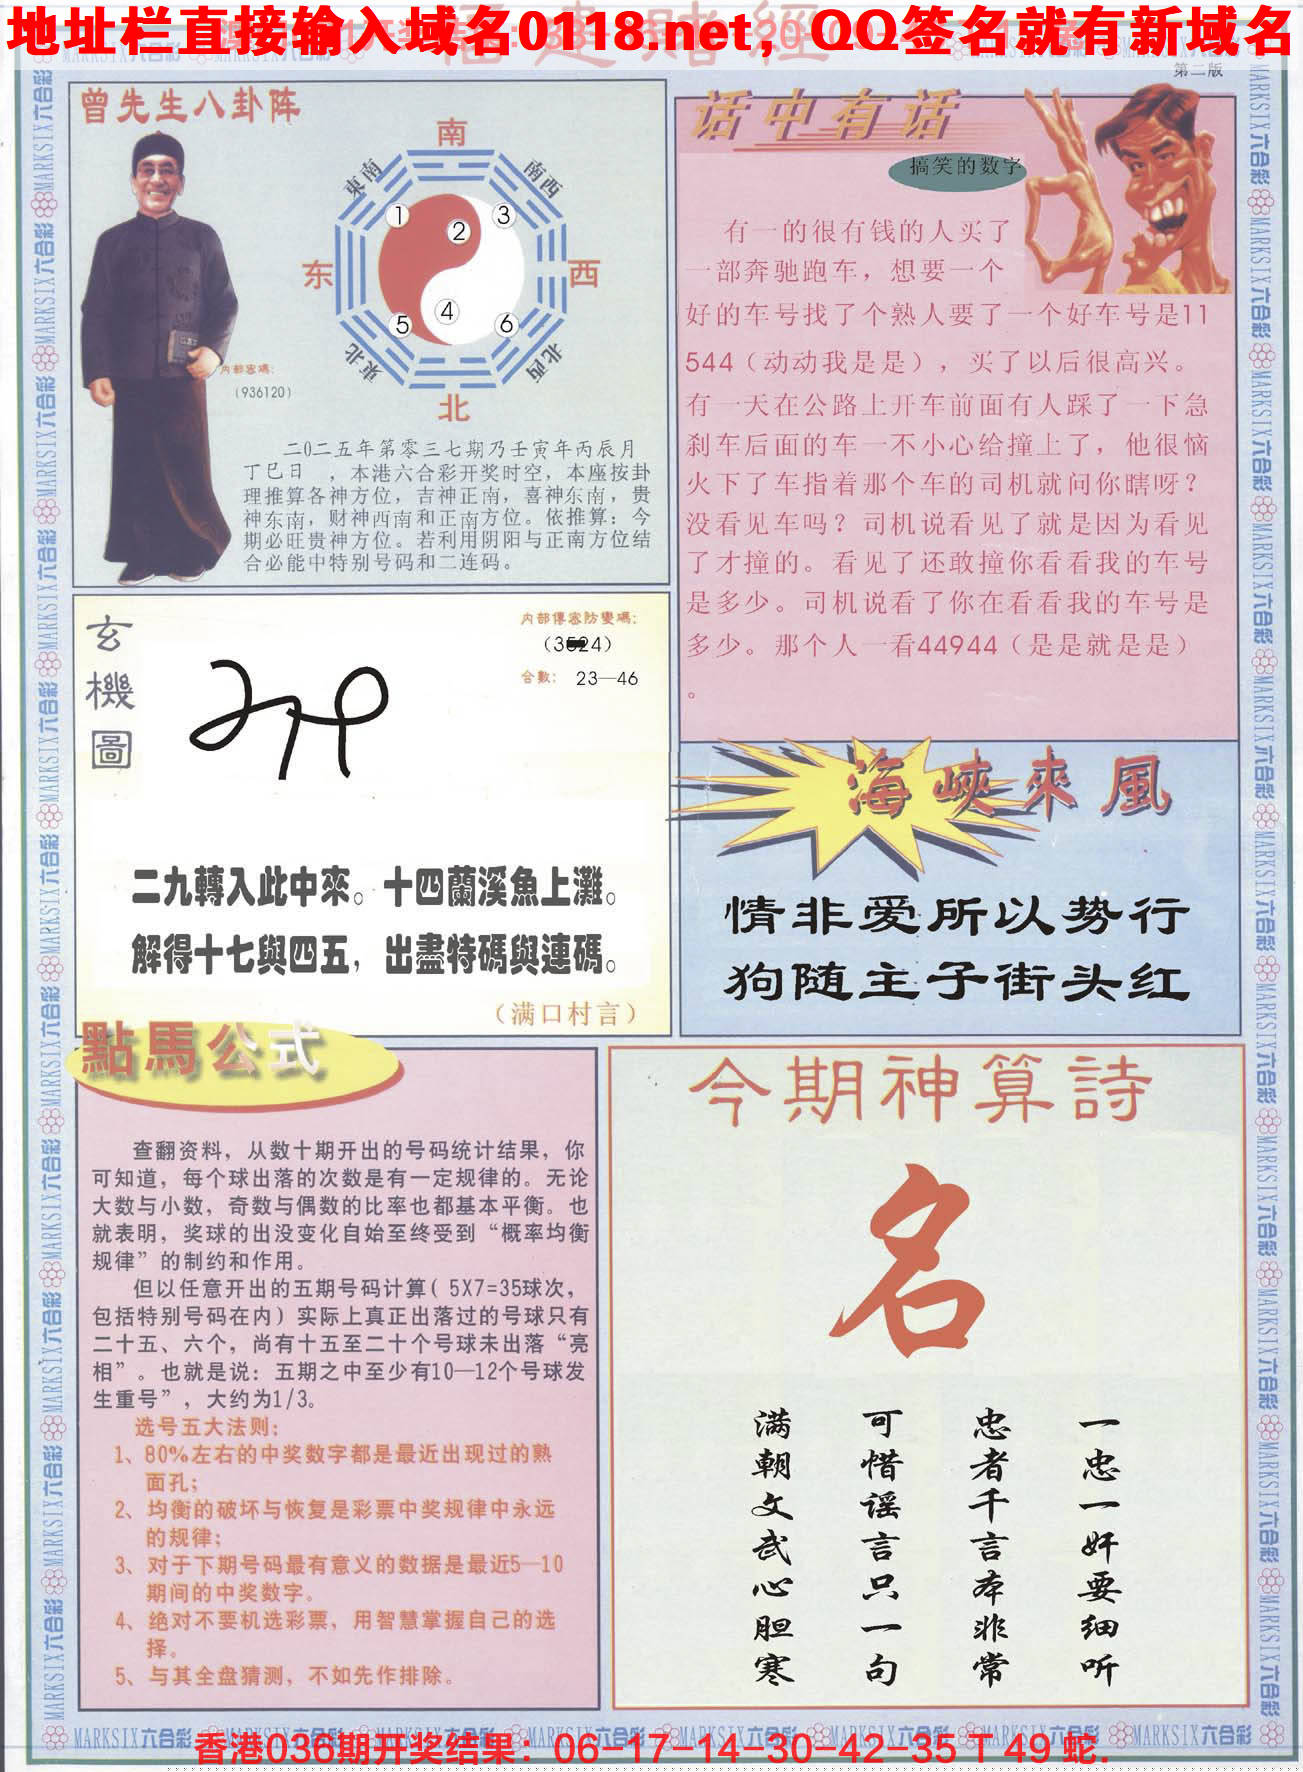 地址栏直接输入域名0118.net，QQ签名就有新域名
福建赌經
第二版
曾先生八卦阵
南
東南
南西
1
2
3
东
西
4
5
6
東北
北西
北
内部密碼:
(936120)
二0二五年第零三七期乃壬寅年丙辰月
丁巳日 ，本港六合彩开奖时空，本座按卦
理推算各神方位，吉神正南，喜神东南，贵
神东南，财神西南和正南方位。依推算：今
期必旺贵神方位。若利用阴阳与正南方位结
合必能中特别号码和二连码。
话中有话
搞笑的数字
有一的很有钱的人买了
一部奔驰跑车，想要一个
好的车号找了个熟人要了一个好车号是11
544（动动我是是），买了以后很高兴。
有一天在公路上开车前面有人踩了一下急
刹车后面的车一不小心给撞上了，他很恼
火下了车指着那个车的司机就问你瞎呀？
没看见车吗？司机说看见了就是因为看见
了才撞的。看见了还敢撞你看看我的车号
是多少。司机说看了你在看看我的车号是
多少。那个人一看44944（是是就是是）
。
玄機圖
内部傳密防變碼:
合數: 23—46
二九轉入此中來。十四蘭溪魚上灘。
解得十七與四五，出盡特碼與連碼。
（满口村言）
海峽來風
情非爱所以势行
狗随主子街头红
點馬公式
查翻资料，从数十期开出的号码统计结果，你
可知道，每个球出落的次数是有一定规律的。无论
大数与小数，奇数与偶数的比率也都基本平衡。也
就表明，奖球的出没变化自始至终受到“概率均衡
规律”的制约和作用。
但以任意开出的五期号码计算( 5X7=35球次，
包括特别号码在内）实际上真正出落过的号球只有
二十五、六个，尚有十五至二十个号球未出落“亮
相”。也就是说：五期之中至少有10—12个号球发
生重号”，大约为1/3。
选号五大法则；
1、80%左右的中奖数字都是最近出现过的熟
面孔；
2、均衡的破坏与恢复是彩票中奖规律中永远
的规律；
3、对于下期号码最有意义的数据是最近5—10
期间的中奖数字。
4、绝对不要机选彩票，用智慧掌握自己的选
择。
5、与其全盘猜测，不如先作排除。
今期神算詩
名
一忠一奸要细听
忠者千言本非常
可惜谣言只一句
满朝文武心胆寒
MARKSIX六合彩
香港036期开奖结果：06-17-14-30-42-35 T 49 蛇.